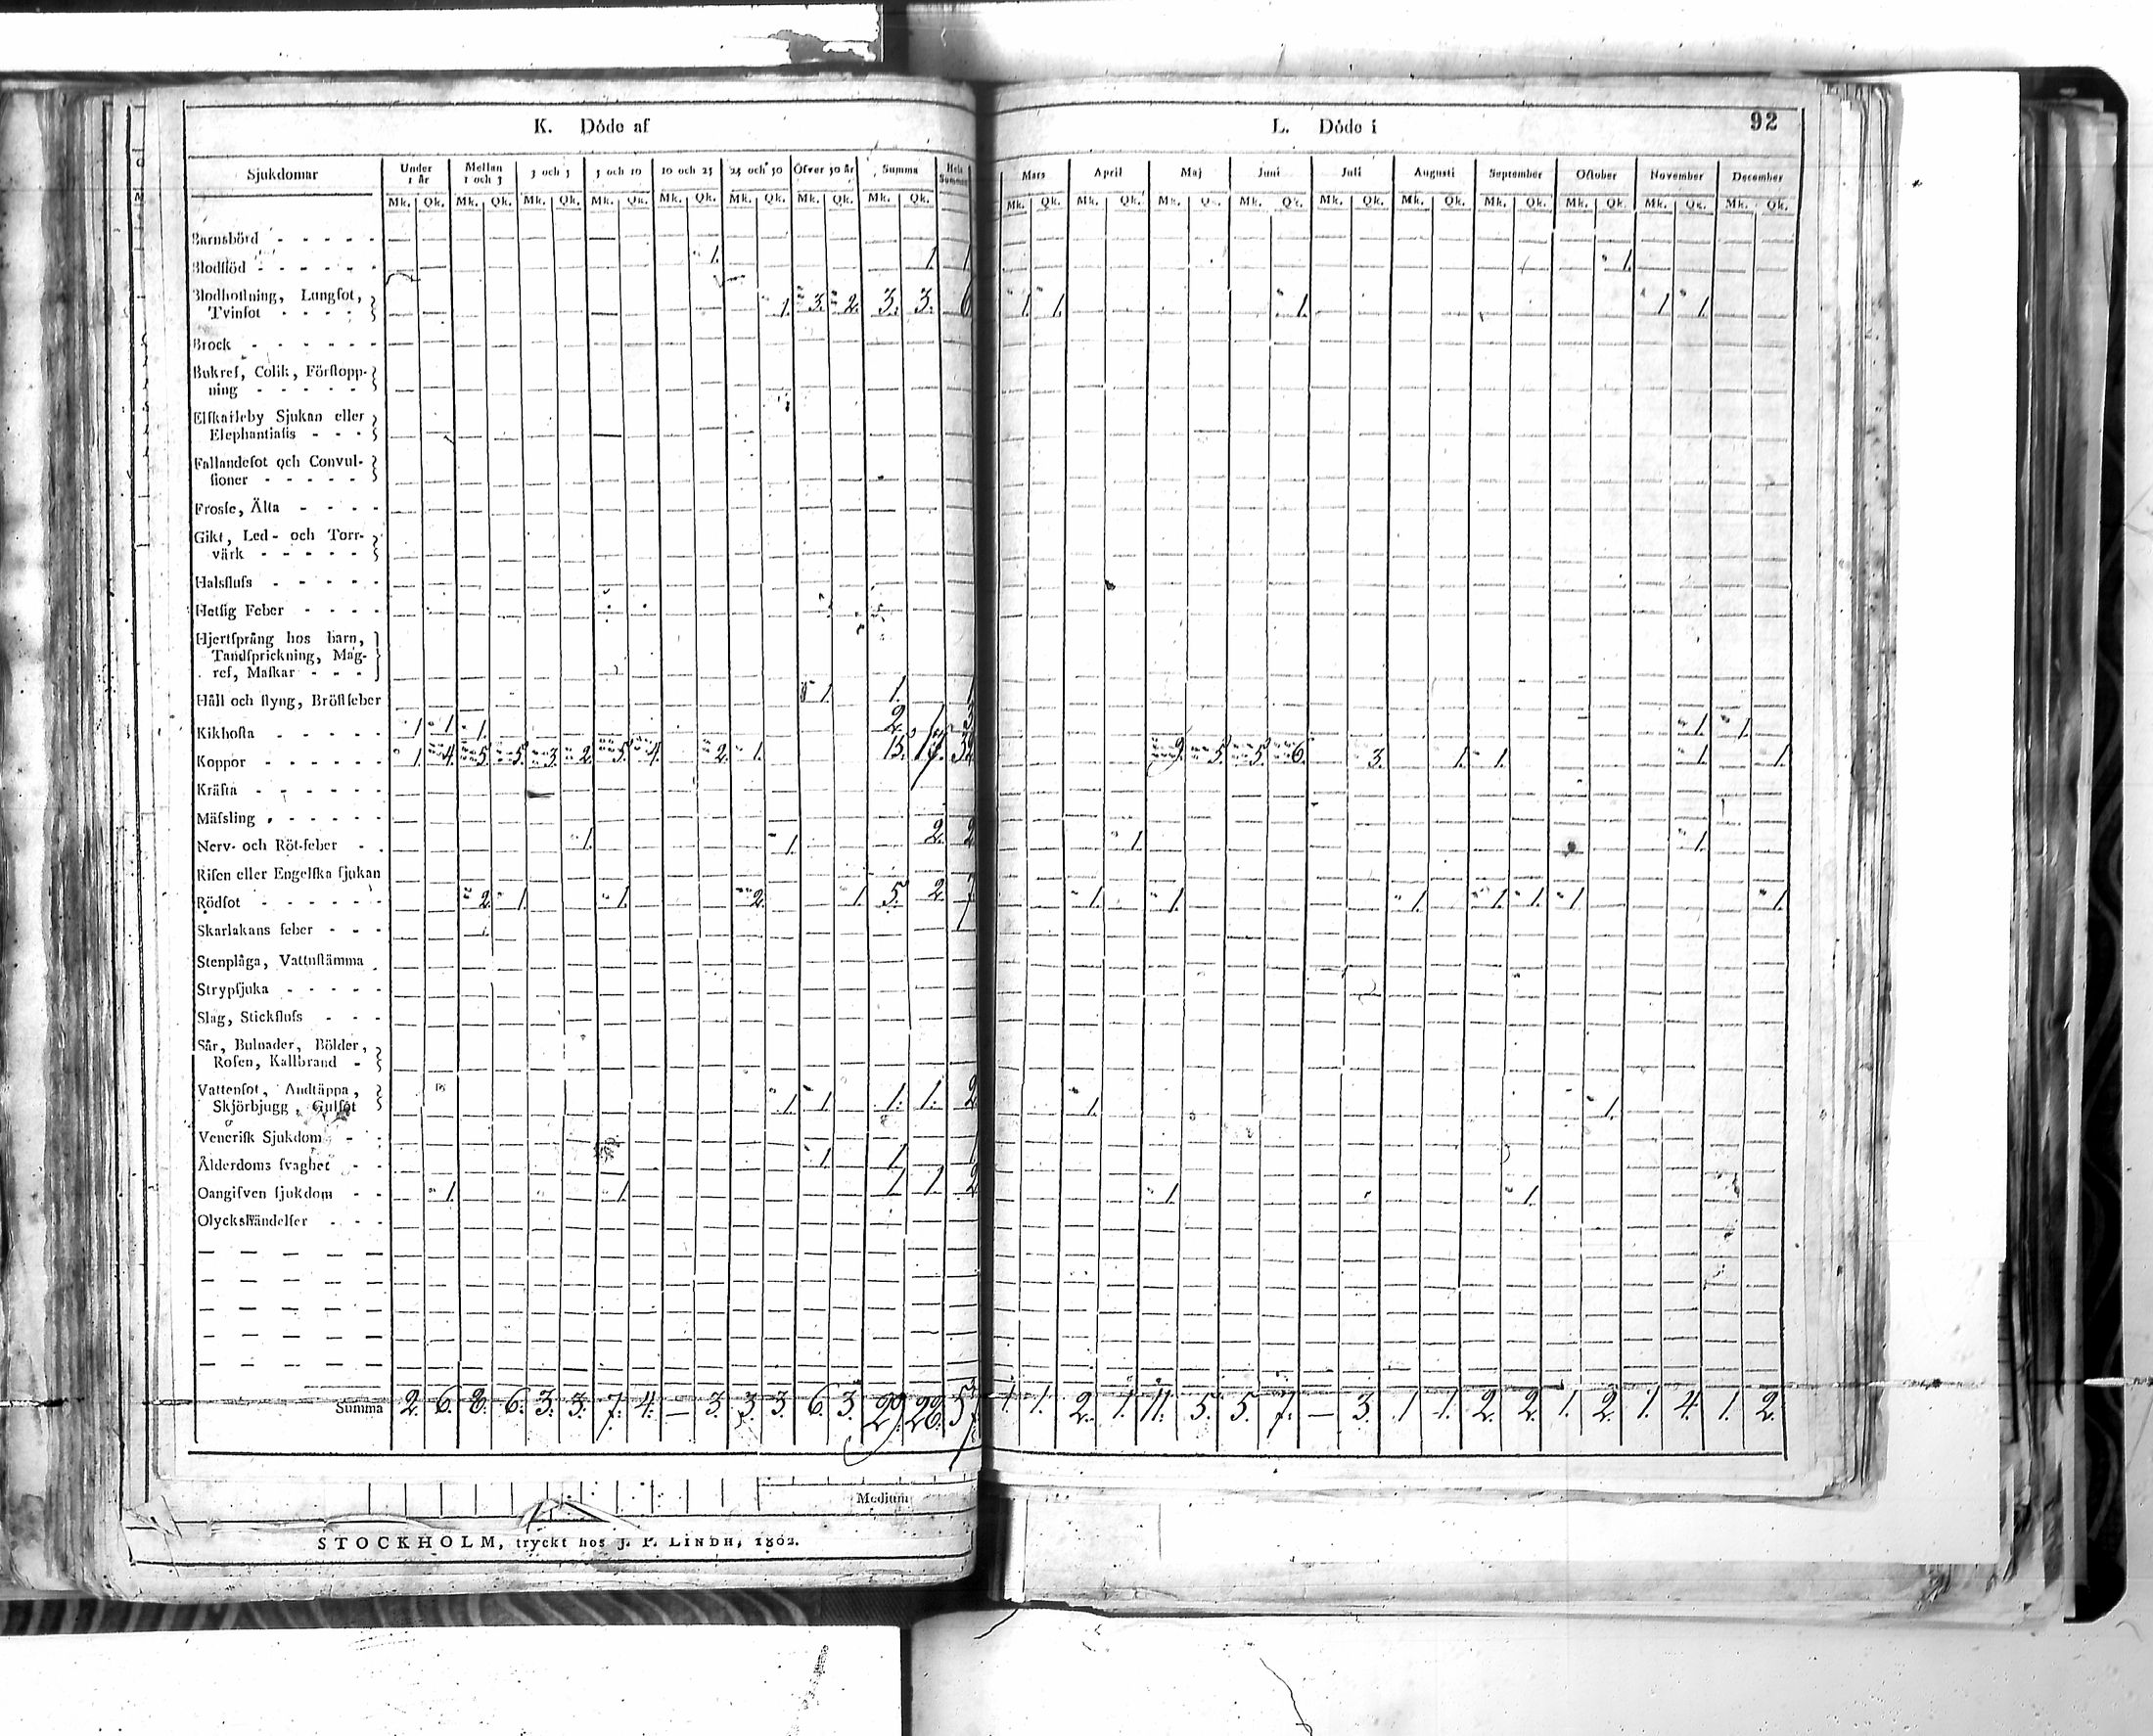 K. Döde af
L. Döde i
92
Sjukdomar Under 1 år Mellan 1 och 3 3 och 5 5 och 10 10 och 25 25 och 50 Öfver 50 år Summa Hela Summan Mars April Maj Juni Juli Augusti September October November December
Mk. Qk. Mk. Qk. Mk. Qk. Mk. Qk. Mk. Qk. Mk. Qk. Mk. Qk. Mk. Qk. Mk. Qk. Mk. Qk. Mk. Qk. Mk. Qk. Mk. Qk. Mk. Qk. Mk. Qk. Mk. Qk. Mk. Qk. Mk. Qk.
Barnsbörd - - - - -
Blodflöd - - - - - - 1. 1. 1 1.
Blodhoſtning, Lungſot,
Tvinſot - - - - 1. 3. 2. 3. 3. 6 1. 1. 1. 1. 1.
Brock - - - - - -
Bukref, Colik, Förſtopp-
ning - - - - -
Elſkarleby Sjukan eller
Elephantiaſis - - -
Fallandeſot och Convul-
ſioner - - - - -
Frosſe, Älta - - - -
Gikt, Led- och Torr-
värk - - - - -
Halsfluſs - - - - -
Hetſig Feber - - - -
Hjertſprång hos barn,
Tandſprickning, Mag-
ref, Maſkar - - -
Håll och ſtyng, Bröſtfeber 1. 1. 1
Kikhoſta - - - - - 1 1. 1. 2. 1 3 1. 1.
Koppor - - - - - - 1. 4. 5. 5. 3. 2. 5. 4. 2. 1. 15. 17. 32 9. 5. 5. 6. 3. 1. 1. 1. 1.
Kräfta - - - - - -
Mäſsling - - - - - -
Nerv- och Röt-feber - - 1. 1. 2. 2 1. 1.
Riſen eller Engelſka ſjukan
Rödſot - - - - - - 2. 1. 1. 2. 1. 5. 2. 7 1. 1. 1. 1. 1. 1. 1.
Skarlakans feber - - -
Stenplåga, Vattuſtämma
Strypſjuka - - - - -
Slag, Stickfluſs - - -
Sår, Bulnader, Bölder,
Roſen, Kallbrand -
Vattenſot, Andtäppa,
Skjörbjugg, Gulſot 1. 1. 1. 1. 2 1. 1.
Veneriſk Sjukdom - -
Ålderdoms ſvaghet - - 1. 1.
Oangifven ſjukdom - - 1. 1. 1 1. 2 1. 1.
Olyckshändelſer - - -
Summa 2. 6. 8. 6. 3. 3. 7. 4. — 3. 3. 3. 6. 3. 29. 28. 57 1. 1. 2. 1. 11. 5. 5. 7. — 3. 1 1. 2. 2. 1. 2. 1. 4. 1. 2.
Medium
STOCKHOLM, tryckt hos J. P. LINDH, 1802.